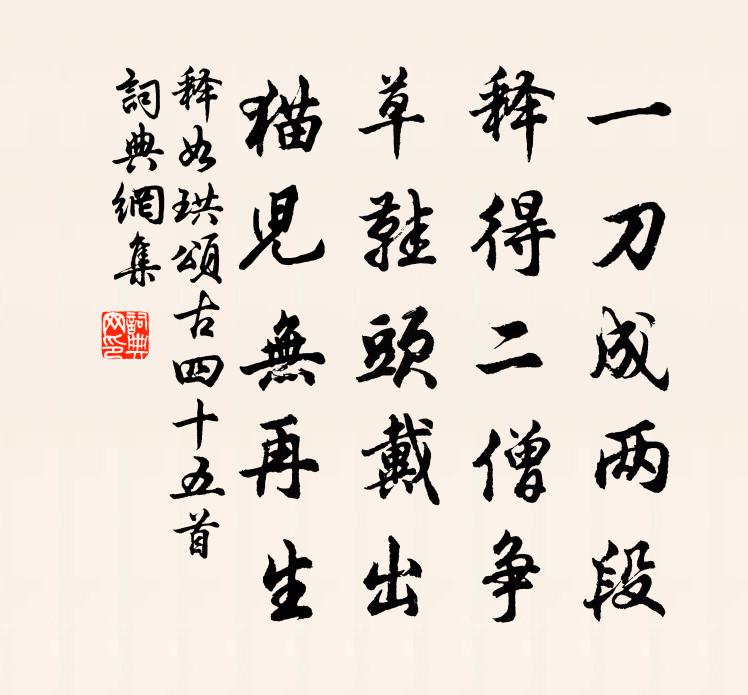 一刀成两段
释得二僧争
草鞋頭戴出
猫児無再生
释如珙頌古四十五首
詞典網集
詞典
网印